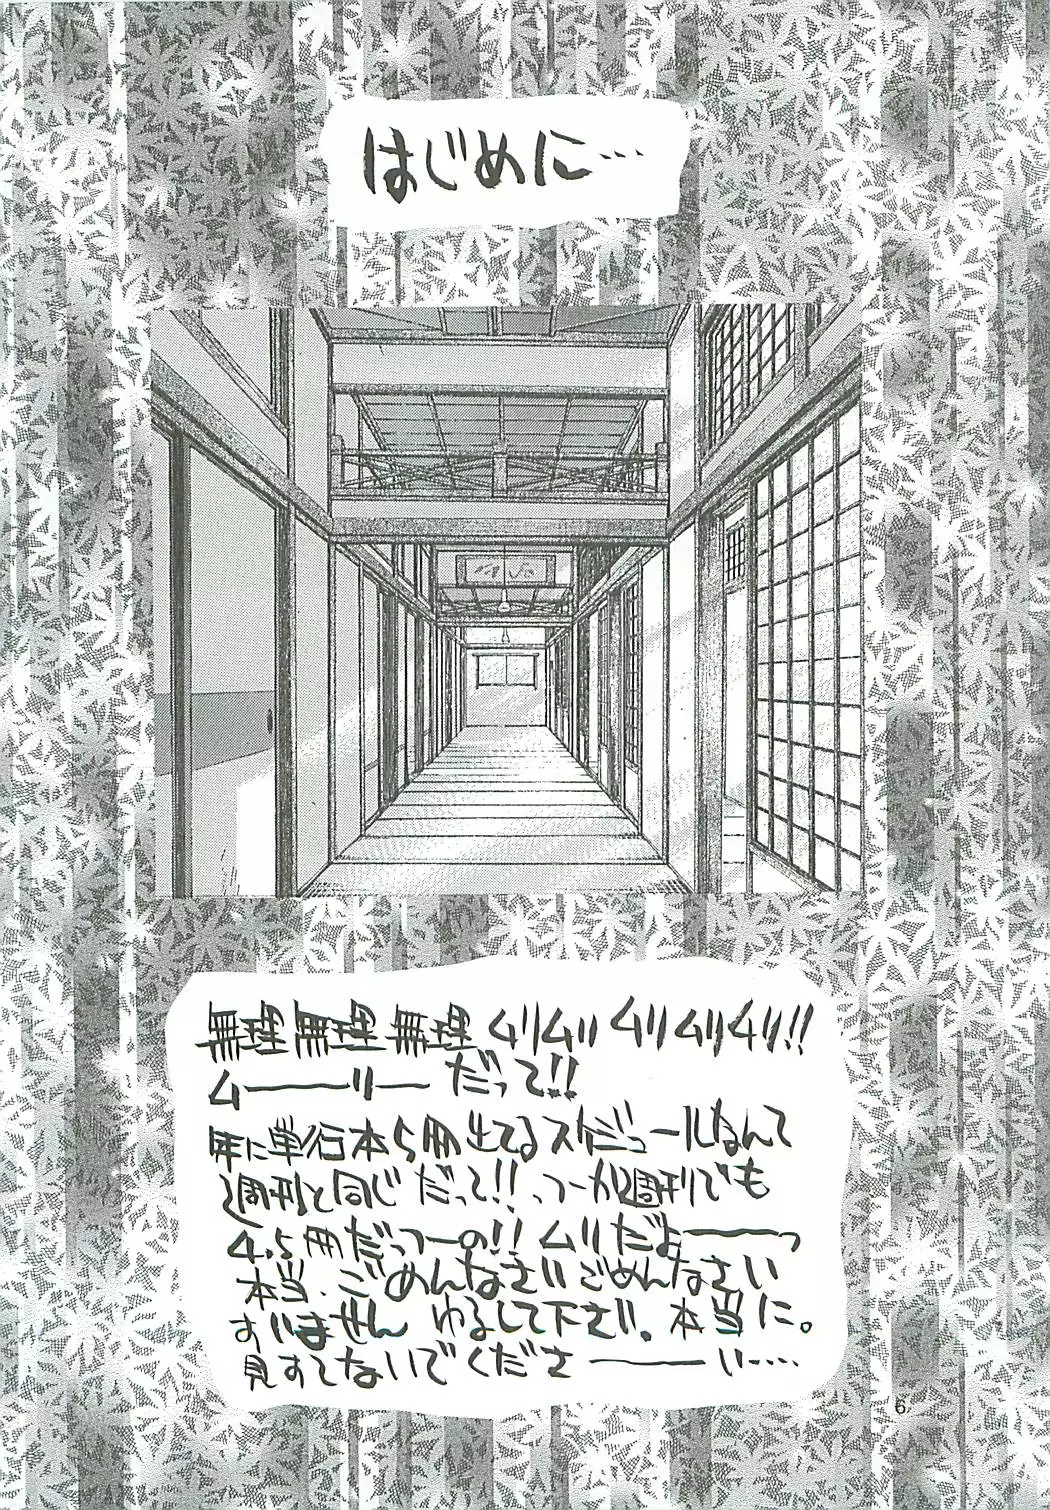 はじめに…
無理無理無理ムリムリムリムリムリ!!
ムーーリーだって!!
年に単行本5冊出てるスケジュールなんて
週刊と同じだって!!、つーか週刊でも
4.5冊だっつーの!!ムリだよーーっ
本当、ごめんなさいごめんなさい
すいませんゆるして下さい。本当に。
見すてないでくださーーい……
6